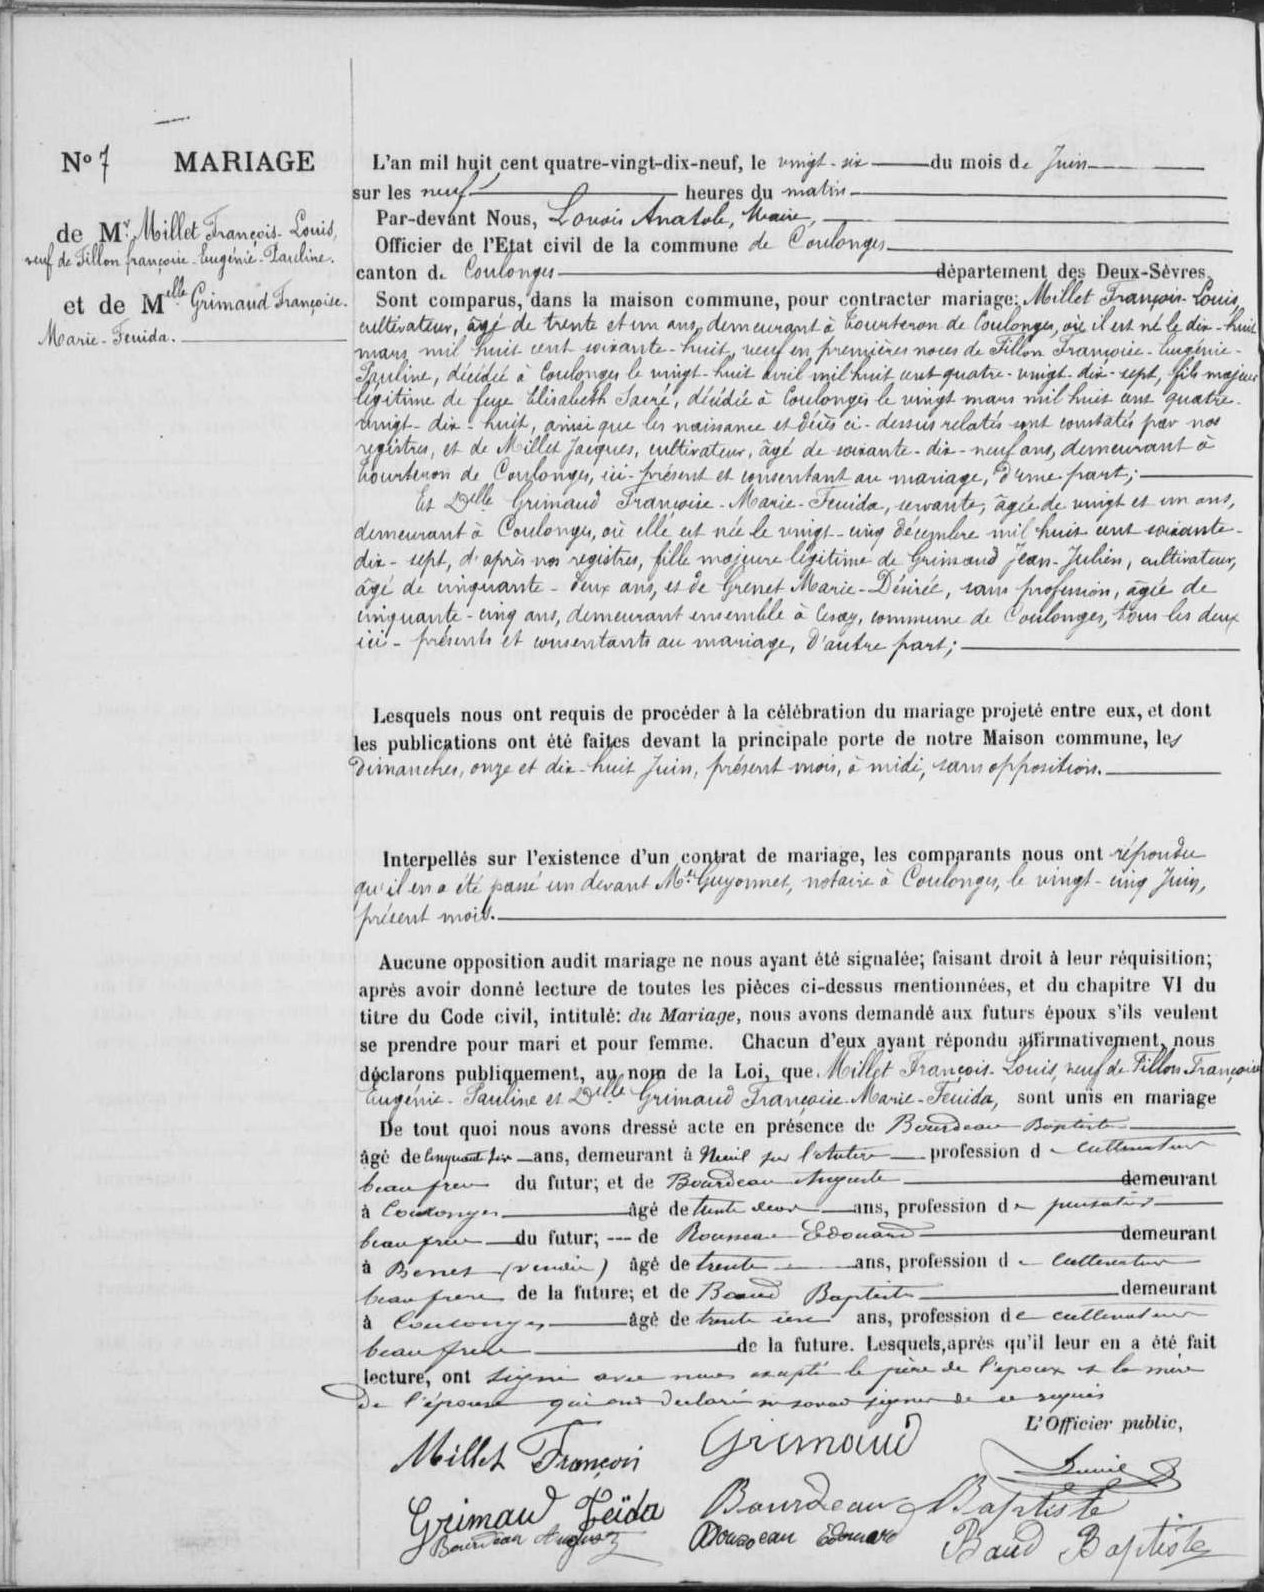 N° 7 MARIAGE
de Mr Millet François-Louis,
veuf de Fillon françoise-Eugénie-Pauline.
et de Melle Grimaud Françoise-
Marie-Feuida.
L'an mil huit cent quatre-vingt-dix-neuf, le vingt-six du mois de Juin
sur les neuf heures du matin
Par-devant Nous, Louis Anatole, Maire,
Officier de l'Etat civil de la commune de Coulonges
canton de Coulonges département des Deux-Sèvres.
Sont comparus, dans la maison commune, pour contracter mariage: Millet François-Louis,
cultivateur, âgé de trente et un ans, demeurant à Courteron de Coulonges, où il est né le dix-huit
mars mil huit cent soixante-huit, veuf en premières noces de Fillon Françoise-Eugénie-
Pauline, décédée à Coulonges le vingt-huit avril mil huit cent quatre-vingt-dix-sept, fils majeur
légitime de feue Elisabeth Sacré, décédée à Coulonges le vingt mars mil huit cent quatre-
vingt-dix-huit, ainsi que les naissance et décès ci-dessus relatés sont constatés par nos
registres, et de Millet Jacques, cultivateur, âgé de soixante-dix-neuf ans, demeurant à
Courteron de Coulonges, ici-présent et consentant au mariage, d'une part;
Et Delle Grimaud Françoise-Marie-Feuida, servante, âgée de vingt et un ans,
demeurant à Coulonges, où elle est née le vingt-cinq décembre mil huit cent soixante-
dix-sept, d'après nos registres, fille majeure légitime de Grimaud Jean-Julien, cultivateur,
âgé de cinquante-deux ans, et de Grenet Marie-Désirée, sans profession, âgée de
cinquante-cinq ans, demeurant ensemble à commune de Coulonges, tous les deux
ici-présents et consentants au mariage, d'autre part;
Lesquels nous ont requis de procéder à la célébration du mariage projeté entre eux, et dont
les publications ont été faites devant la principale porte de notre Maison commune, les
dimanches, onze et dix-huit Juin, présent mois, à midi, sans opposition.
Interpellés sur l'existence d'un contrat de mariage, les comparants nous ont répondu
qu'il en a été passé un devant Me Guyonnet, notaire à Coulonges, le vingt-cinq Juin,
présent mois.
Aucune opposition audit mariage ne nous ayant été signalée; faisant droit à leur réquisition;
après avoir donné lecture de toutes les pièces ci-dessus mentionnées, et du chapitre VI du
titre du Code civil, intitulé: du Mariage, nous avons demandé aux futurs époux s'ils veulent
se prendre pour mari et pour femme. Chacun d'eux ayant répondu affirmativement, nous
déclarons publiquement, au nom de la Loi, que Millet François-Louis, veuf de Fillon Françoise
Eugénie-Pauline et Delle Grimaud Françoise-Marie-Feuida, sont unis en mariage
De tout quoi nous avons dressé acte en présence de Bourdeau Baptiste
âgé de cinquante six ans, demeurant à Nieul sur l'Autise profession de cultivateur
beau frere du futur; et de Bourdeau Auguste demeurant
à Coulonges âgé de trente deux ans, profession de
beau frere du futur; --- de Rousseau Edouard demeurant
à Benet (vendée) âgé de trente ans, profession de cultivateur
beau frere de la future; et de Baud Baptiste demeurant
à Coulonges âgé de trente ans, profession de cultivateur
beau frere de la future. Lesquels, après qu'il leur en a été fait
lecture, ont signé avec nous excepté le père de l'époux et la mère
de l'épouse qui ont déclaré ne savoir signer de ce requis
L'Officier public,
Millet François Grimaud
Grimaud Feïda Bourdeau Baptiste
Bourdeau Auguste Rousseau Edouard Baud Baptiste